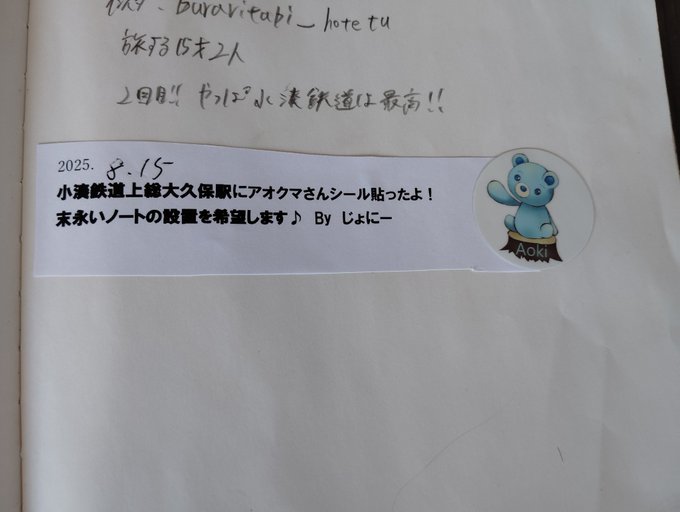 インスタ - Buraritabi_hotetu
旅する15才2人
2回目!! やっぱ小湊鉄道は最高!!
2025. 8.15
小湊鉄道上総大久保駅にアオクマさんシール貼ったよ！
末永いノートの設置を希望します♪ By じょにー
Aoki